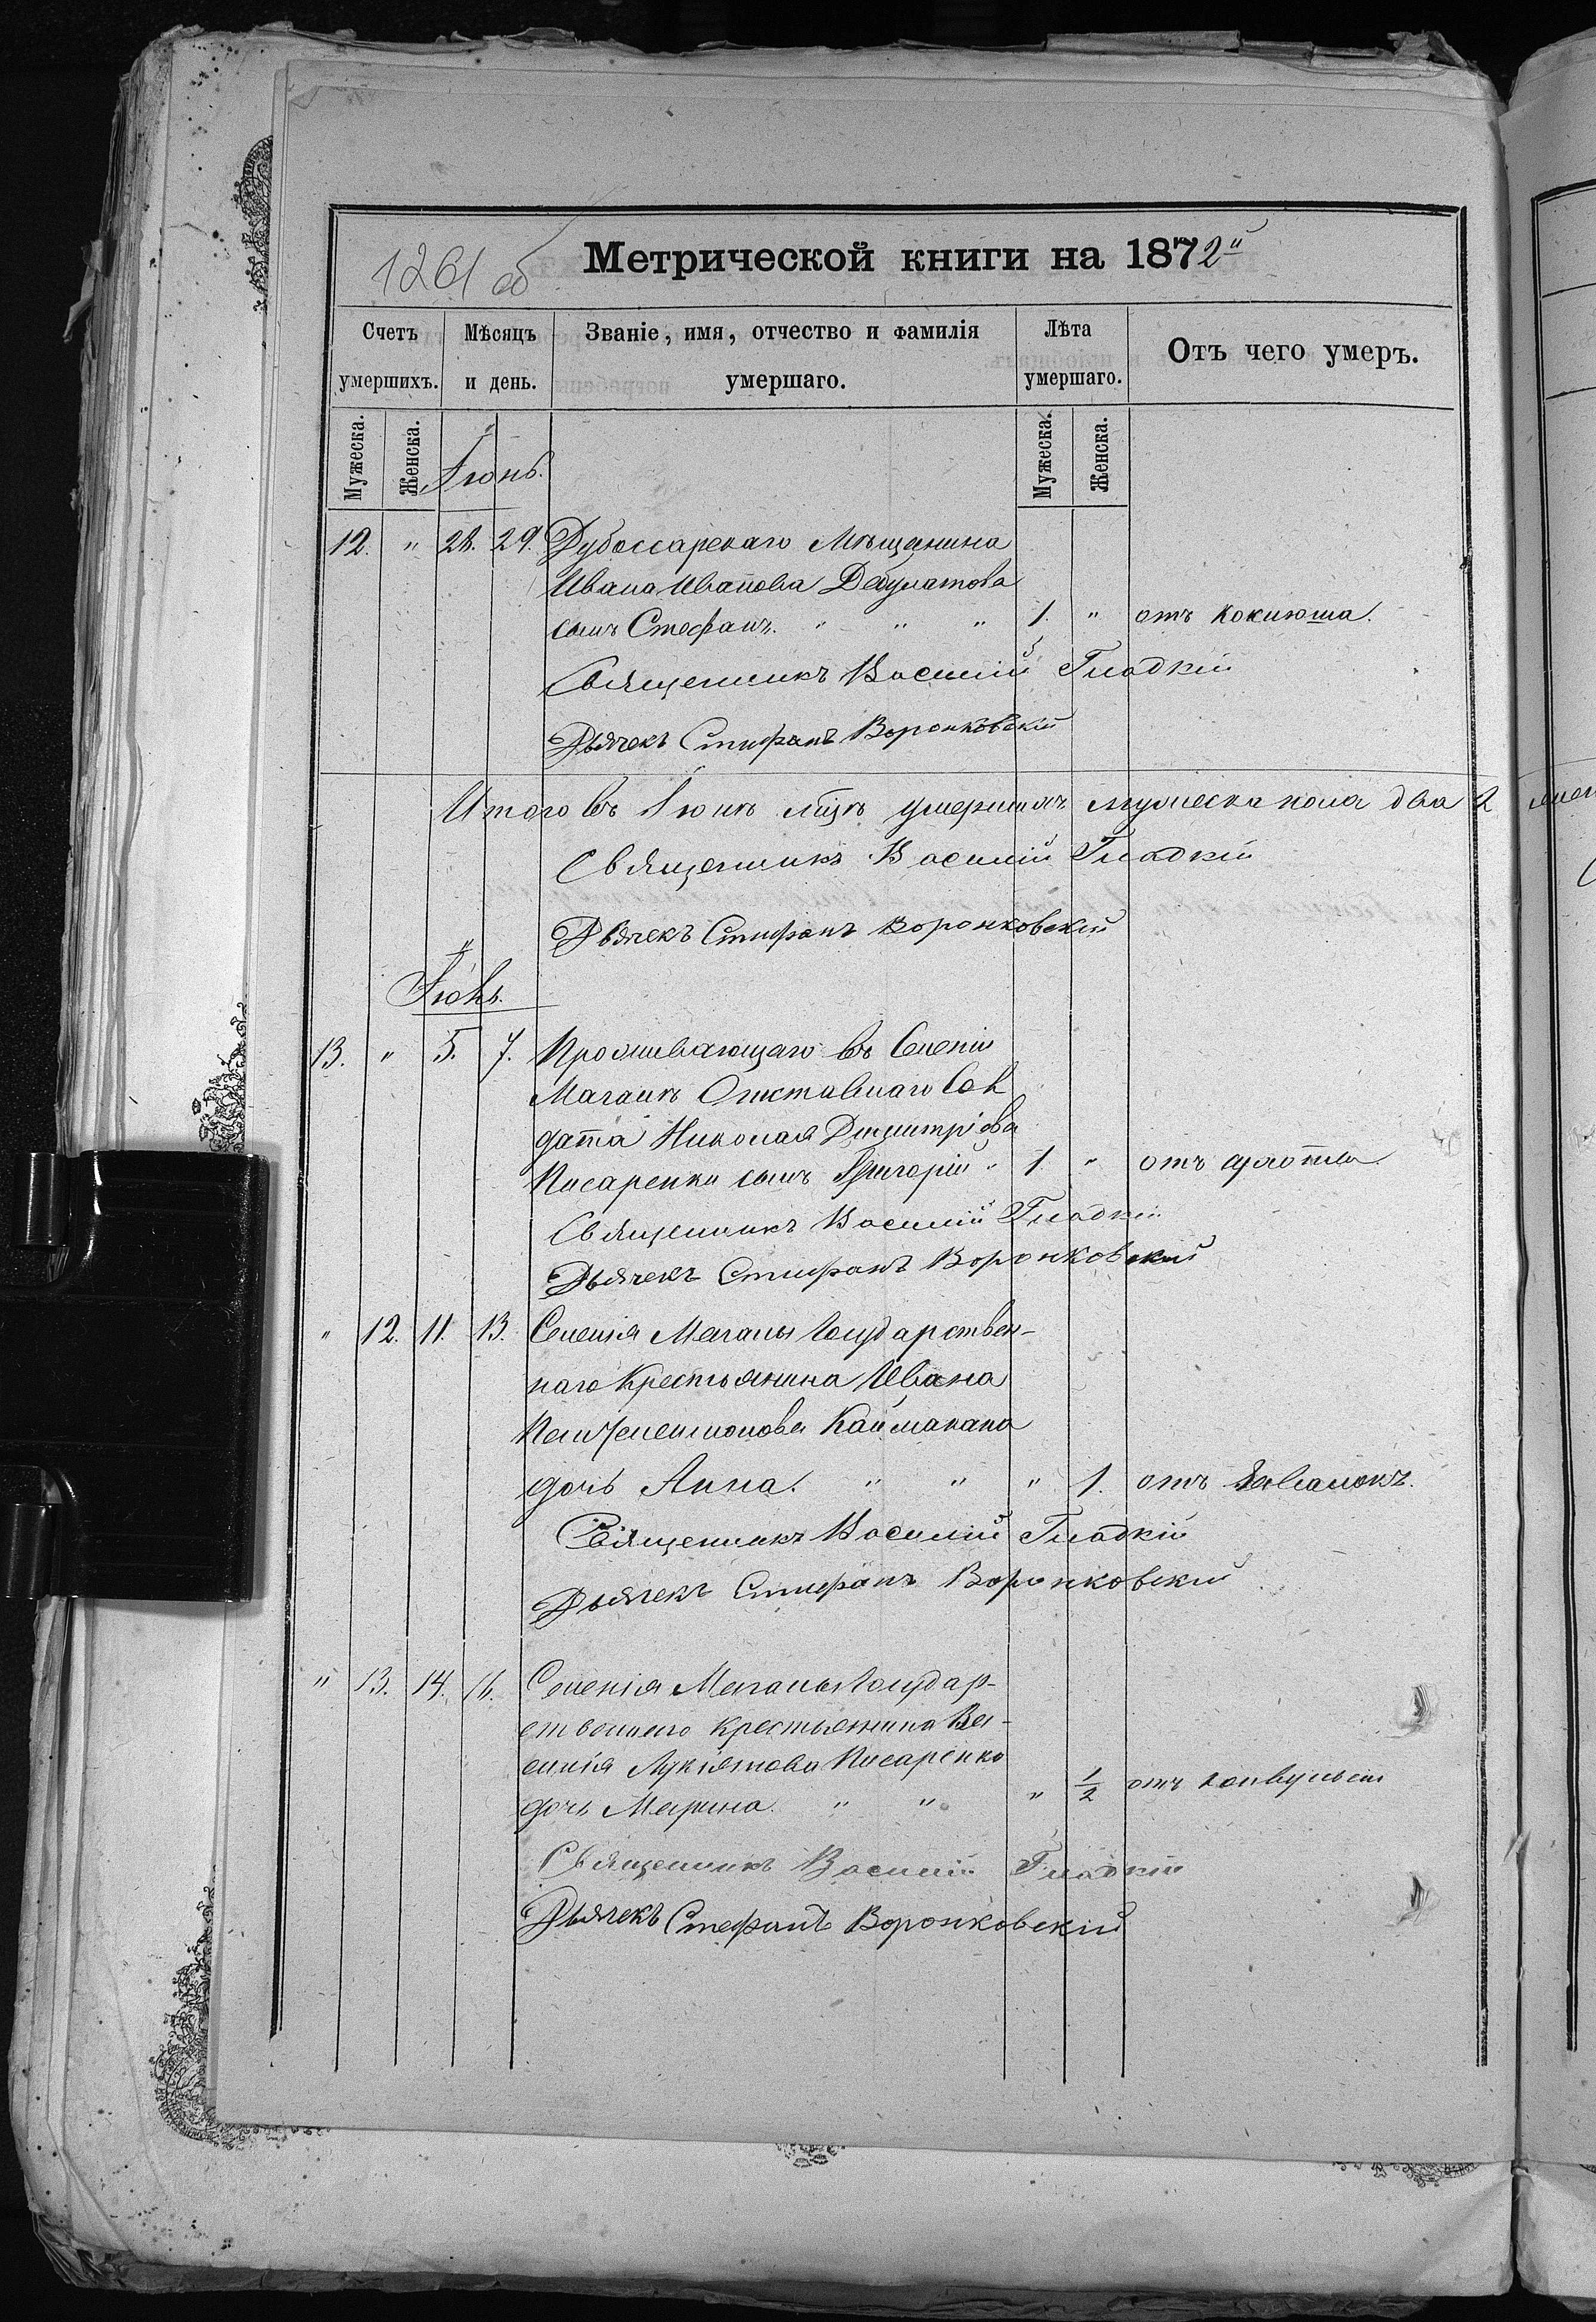 1261 об
Метрической книги на 1872й
Счетъ умершихъ.
Мѣсяцъ и день.
Званіе, имя, отчество и фамилія умершаго.
Лѣта умершаго.
Отъ чего умеръ.
Мужеска.
Женска.
Мужеска.
Женска.
Іюнь.
12. " 28. 29. Дубоссарскаго Мѣщанина
Ивана Иванова
сынъ Стефанъ. " " " 1. " отъ коклюша.
Священникъ Василій Гладкій
Дьячекъ Стефанъ Воронковскій
Итого въ Іюнѣ мцѣ умершихъ мужеска пола два 2
Священникъ Василій Гладкій
Дьячекъ Стефанъ Воронковскій
Іюль.
13. " 5. 7. Проживающаго въ Селеніи
Магалѣ Отставнаго Сол
дата Николая Димитріева
Писаренки сынъ Григорій " 1. " отъ
Священникъ Василій Гладкій
Дьячекъ Стефанъ Воронковскій
" 12. 11. 13. Селенія Магалы Государствен-
наго Крестьянина Ивана
Пантелеимонова Каймакана
дочь Анна. " " " 1. отъ
Священникъ Василій Гладкій
Дьячекъ Стефанъ Воронковскій
" 13. 14. 16. Селенія Магалы Государ-
ственнаго Крестьянина Ва-
силія Лукіянова Писаренко
дочь Марина. " " " 1/2 отъ конвульсіи
Священникъ Василій Гладкій
Дьячекъ Стефанъ Воронковскій